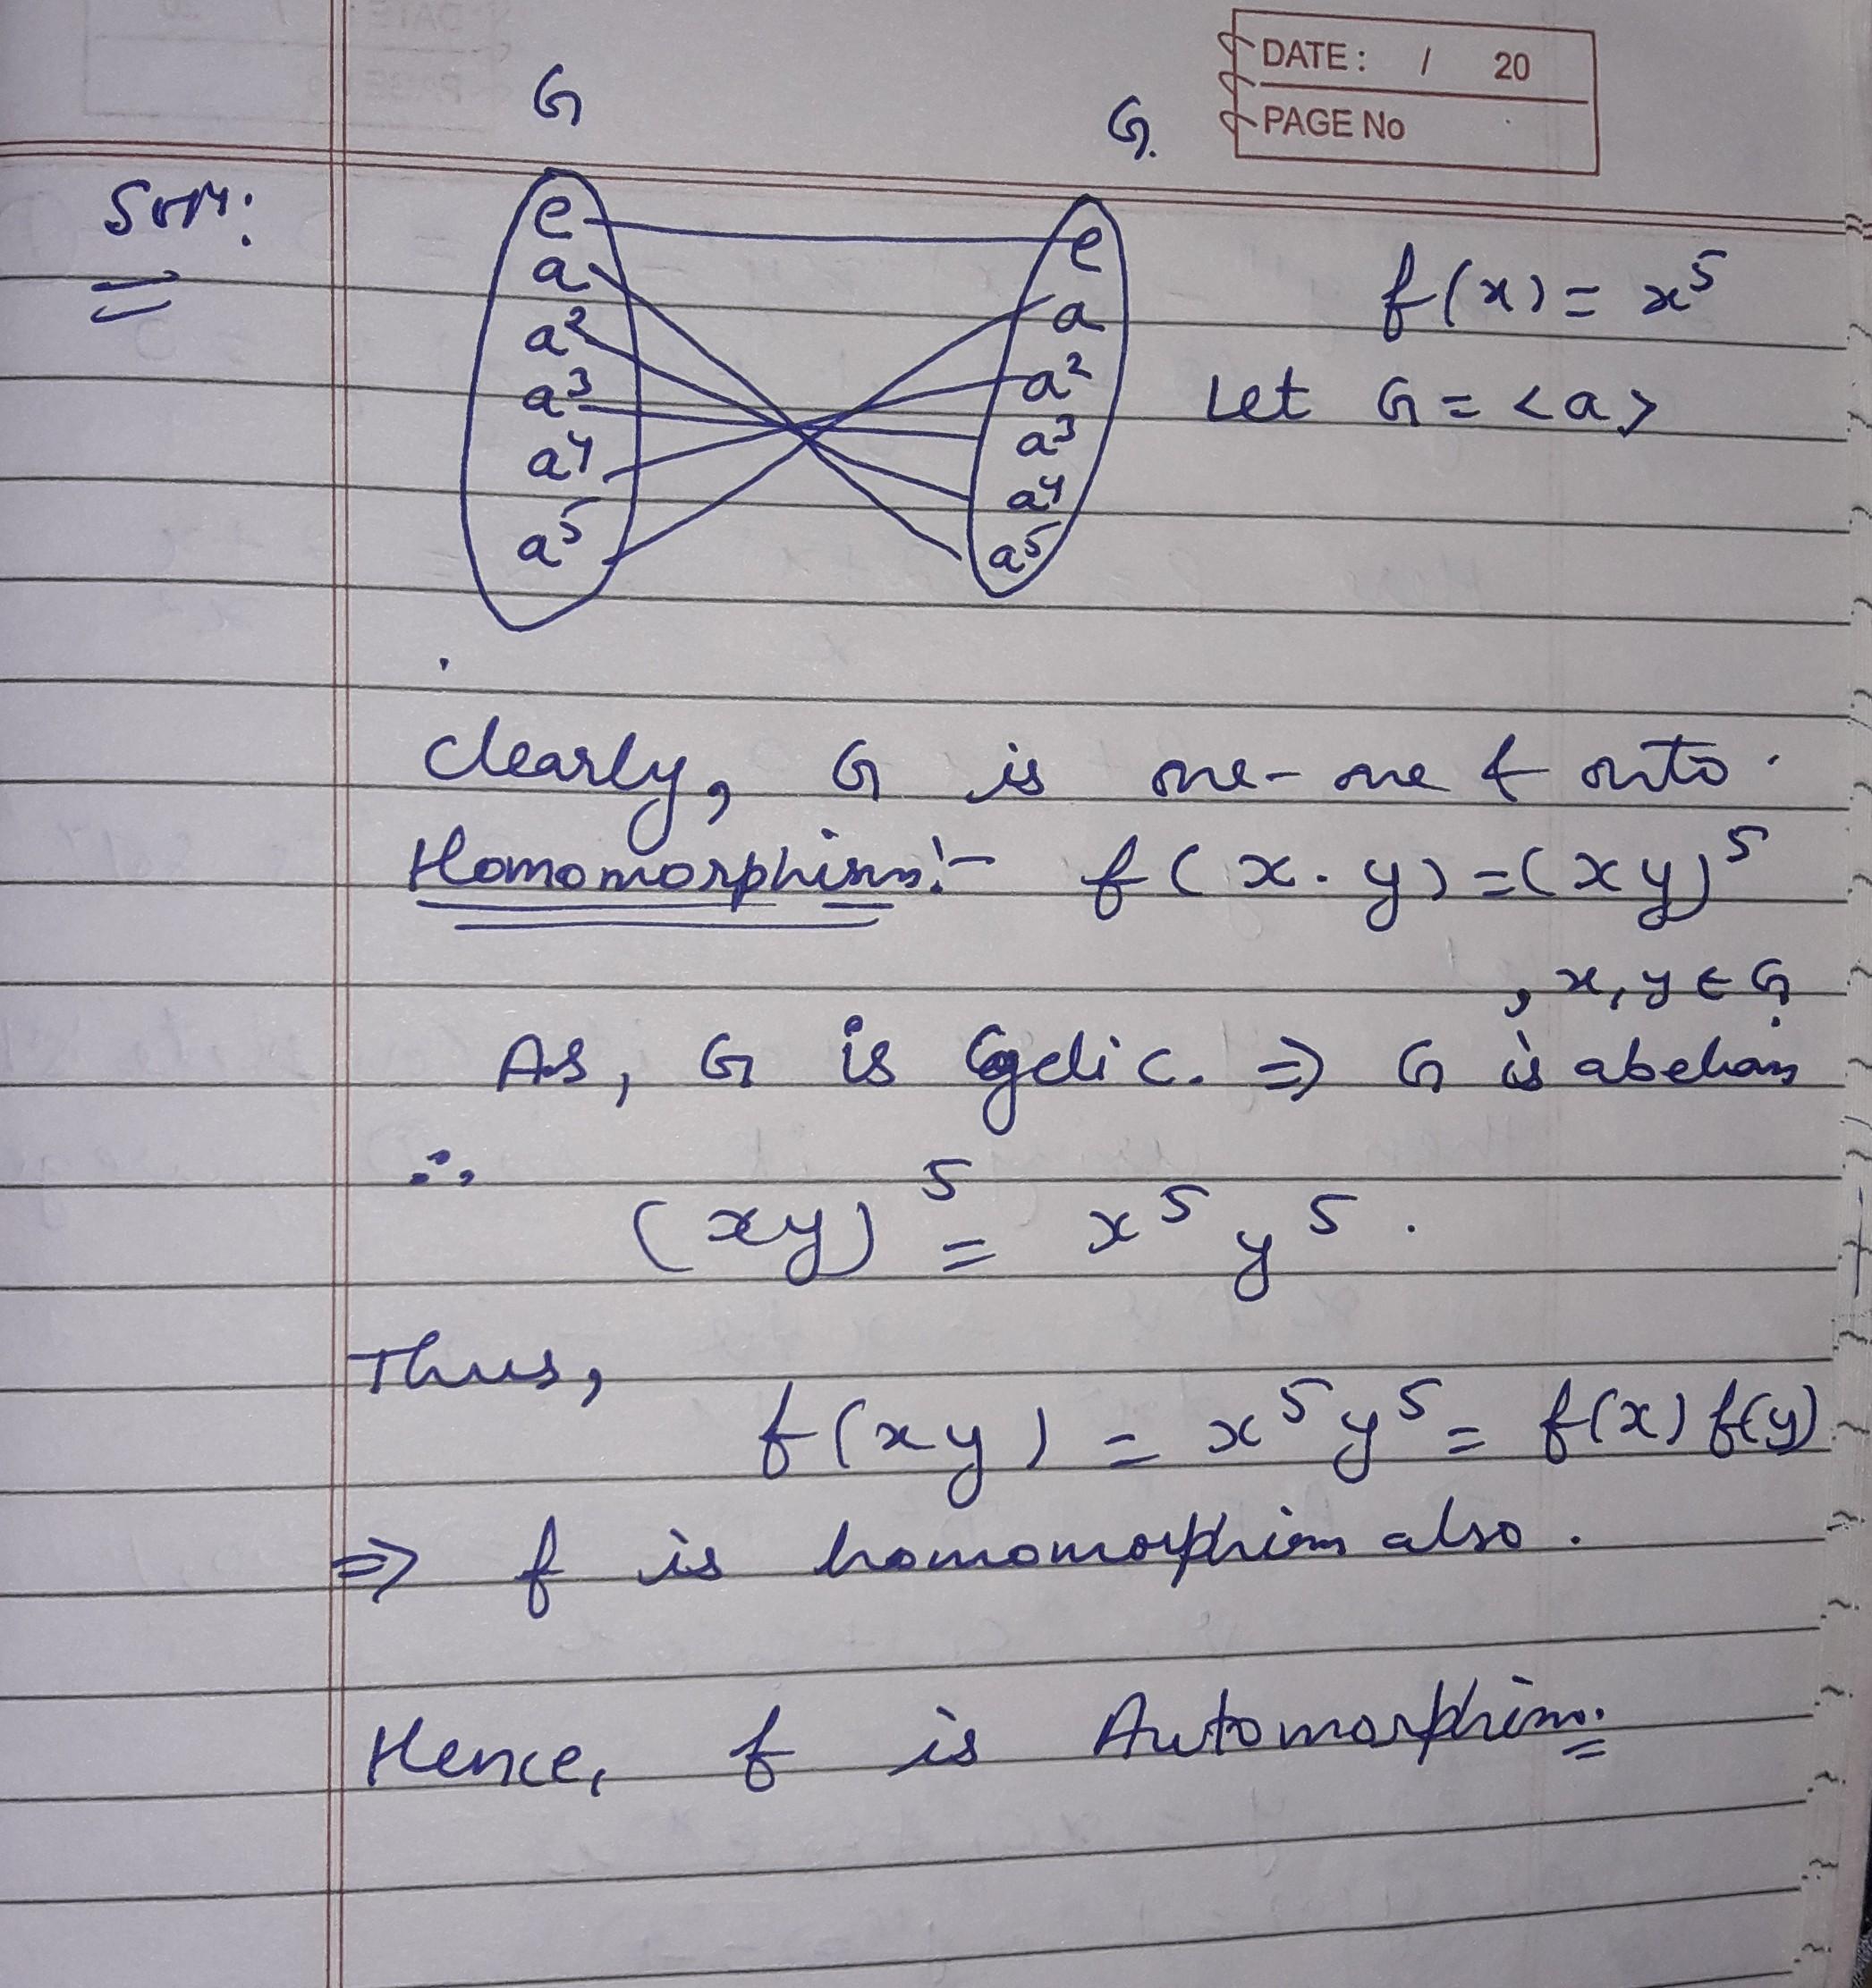 DATE: / 20
PAGE No
G G.
Soln:
e e
a a
a² a²
a³ a³
a⁴ a⁴
a⁵ a⁵
f(x) = x⁵
Let G = <a>
Clearly, G is one-one & onto.
Homomorphism:- f(x.y) = (xy)⁵
, x, y ∈ G.
As, G is Cyclic. ⇒ G is abelian
∴
(xy)⁵ = x⁵ y⁵.
Thus,
f(xy) = x⁵y⁵ = f(x) f(y)
⇒ f is homomorphism also.
Hence, f is Automorphism.